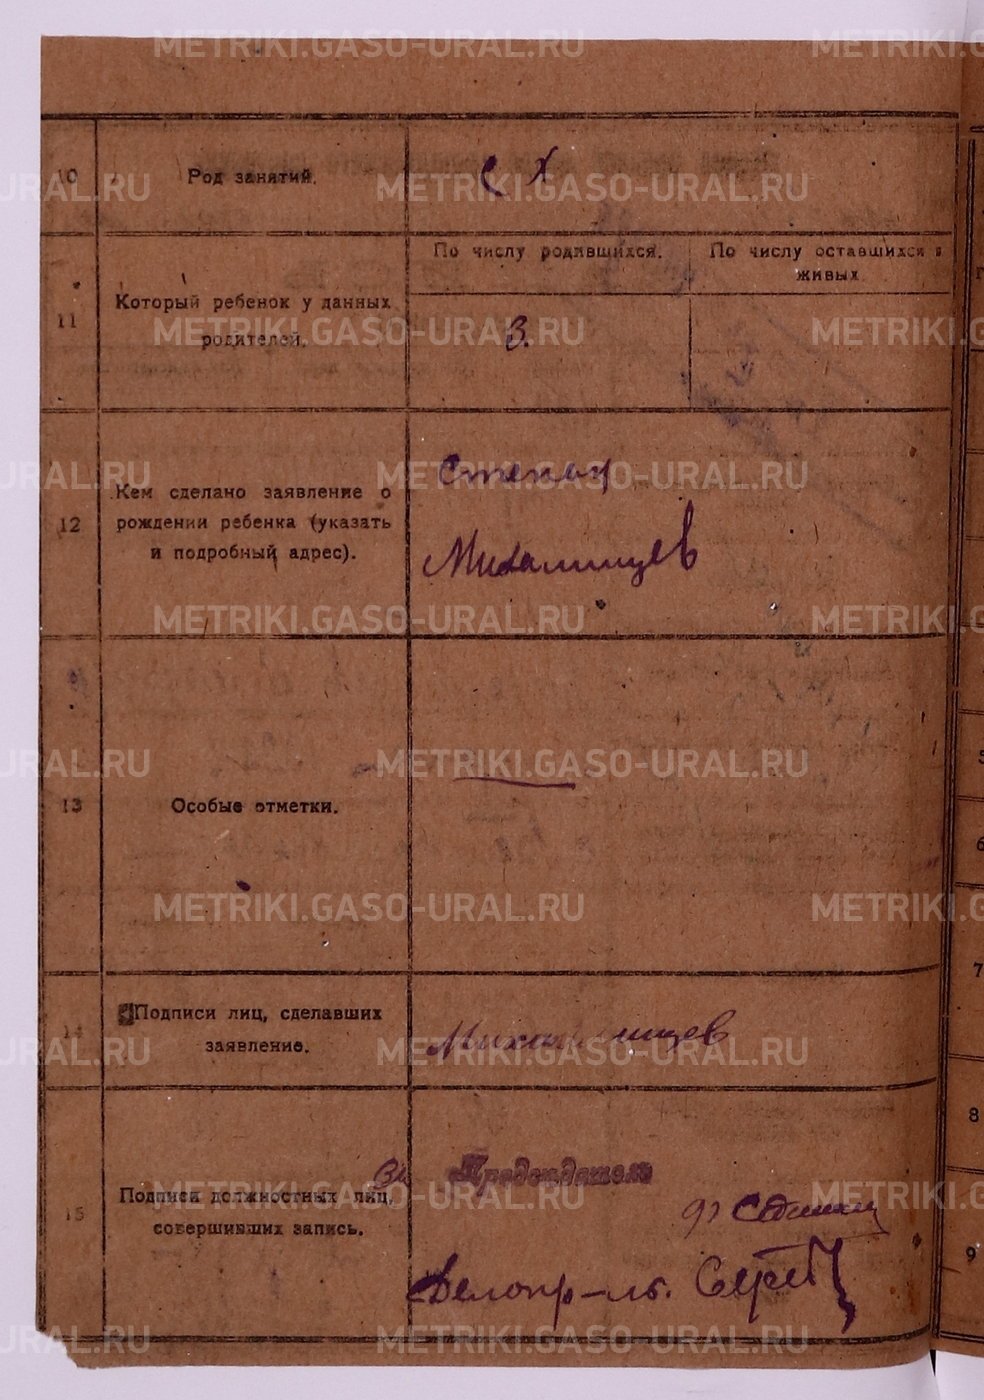 METRIKI.GASO-URAL.RU
10
Род занятий.
с х
11
Который ребенок у данных
родителей.
По числу родившихся.
По числу оставшихся в
живых
3.
12
Кем сделано заявление о
рождении ребенка (указать
и подробный адрес).
Степан
Михалищев
13
Особые отметки.
14
Подписи лиц, сделавших
заявление.
15
Подписи должностных лиц,
совершивших запись.
За Председатель
Делопр-ль.
6
7
8
9